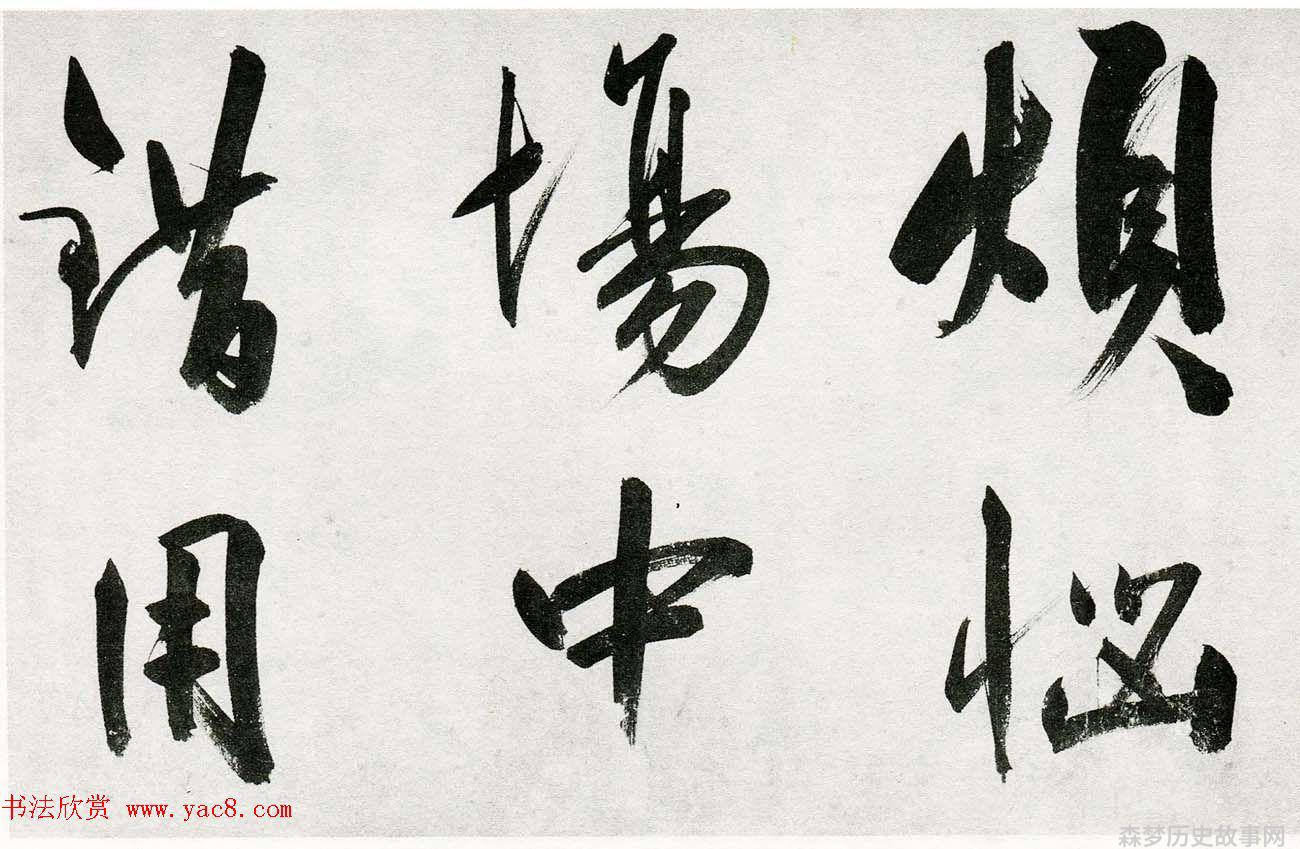 煩惱
場中
錯用
书法欣赏 www.yac8.com
森梦历史故事网